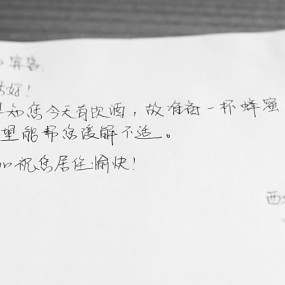 宾客
好!
知您今天有饮酒,故准备一杯蜂蜜
望能帮您缓解不适。
心祝您居住愉快!
西